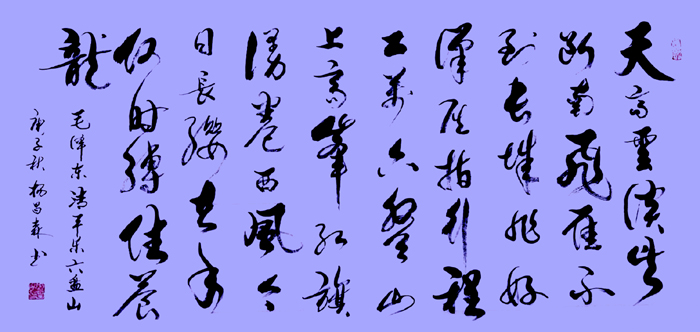 天高雲淡望
断南飛雁不
到长城非好
漢屈指行程
二萬六盤山
上高峯红旗
漫卷西風今
日長纓在手
何时縛住蒼
龍
毛泽东清平乐六盘山
庚子秋杨昌森书